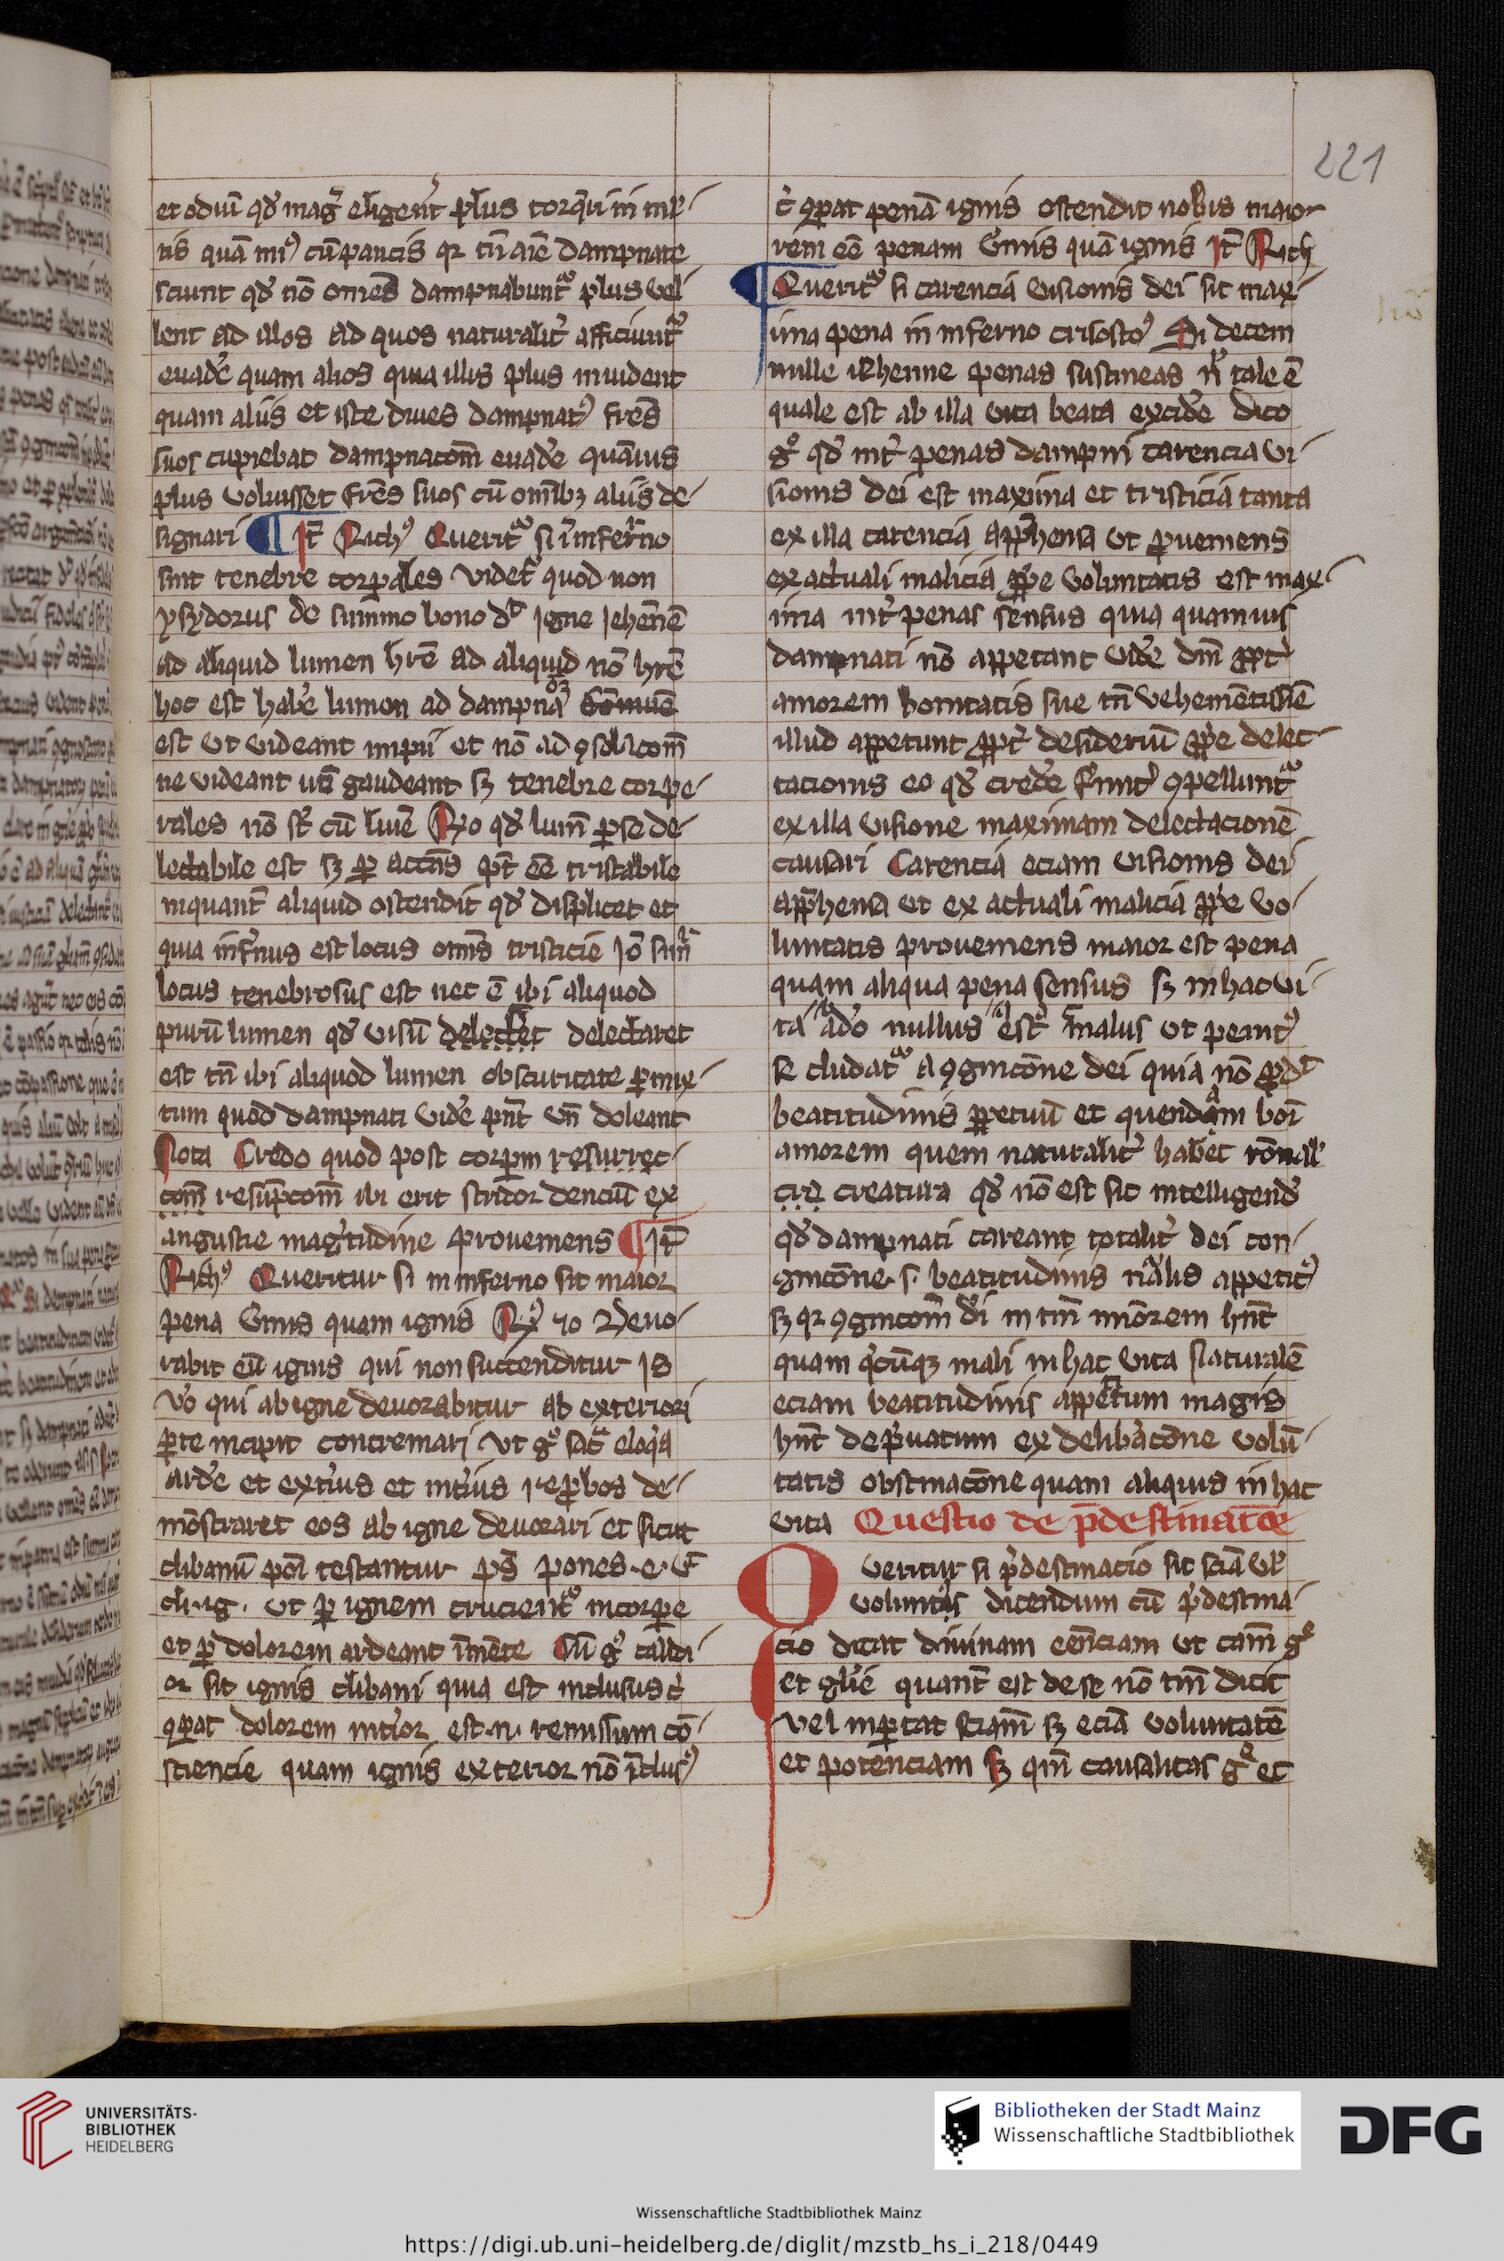 221
et odiū qd' mag̃ eligerẽt plus torq̄ri in ml̾
tis quā mi⁹ cū paucis qr tn̄ aīe dampnate
sciunt qd' nō om̄es dampnabunt᷑ plus vel
lent ad illos ad quos naturalit̾ afficiunt᷑
euad'e quam alios quia illis plus inuident
quam aliis et iste diues dampnat⁹ frēs
suos cupiebat dampnacōm euad'e quāuis
plus voluisset frēs suos cū omībꝫ aliis de
signari ¶ Jt̄ Rich⁹ Querit᷑ si ī inferno
sint tenebre corporales Videt᷑ quod non
ysydorus de summo bono dᵗ Jgne Jehēnē
ad aliquid lumen hr̄e ad aliquid nō hr̄e
hoc est hab'e lumen ad dampna
est vt videant impii et nō ad ꝯsolacōm
ne videant vn̄ gaudeant sꝫ tenebre corpe
rales nō st̄ cū lumīe Rō qd' lum̄ ꝑ se de
lectabile est sꝫ ꝑ accn̄s pt̄ eē tristabile
inquant̄ aliquid ostendit qd' displicet et
quia inf'nus est locus om̄is tristicie Jō
locus tenebrosus est nec ē ibi aliquod
purū lumen qd' visū delectet delectaret
est tn̄ ibi aliquod lumen obscuritate ꝑmix
tum quod dampnati vid'e pn̄t vn̄ doleant
Nota Credo quod post corpm resurrec
com̄ resūpcom̄ ibi erit stridor denciū ex
angustie magⁱtudine proueniens ¶ Jt̄
Rich⁹ Queritur si in inferno sit maior
pena v̾mis quam ignis R⁹ 20 Deuo
rabit eū ignis qui non succenditur Js
v̾o qui ab igne deuorabitur ab exteriori
ꝑte incipit concremari Vt gͦ sac̃ eloq̃a
ard'e et ext̾ius et int̾ius reprobos de
mōstraret eos ab igne deuorari et sicut
clibanū poī testantur pͣs pones e v̄
cli. ig. vt ꝑ ignem crucient᷑ in corpe
et ꝑ dolorem ardeant ī mēte Cū gͦ calidi
or sit ignis clibani quia est inclusus
ꝯparat dolorem int̾ior est .n. remissum cō
sciencie quam ignis exterior nō īclus⁹
ꝯparat penā ignis ostendit nobis maio
rem eē penam v̾mis quā ignis Jt̄ Rich
¶ Querit᷑ si carencia visionis dei sit max
ima pena in inferno crisosto⁹ Si decem
mille iehenne penas sustineas n̄ tale ē
quale est ab illa vita beata excid'e dico
gͦ qd' int̾ penas dampni carencia vi
sionis dei est maxima et tristicia tanta
ex illa carencia app̄hensa vt proueniens
ex actuali malicia ꝓp̾e voluntatis est max
ima int̾ penas sensus quia quamuis
dampnati nō appetant vid'e dm̄ ꝓpt̾
amorem bonitatis sue tn̄ vehemētissīe
illud appetunt ꝓpt̾ desideriū ꝓp̾e delec
tacionis eo qd' cred'e ꝯpellunt᷑
ex illa visione maximam delectacionē
causari Carencia eciam visionis dei
app̄hensa vt ex actuali malicia ꝓp̾e vo
luntatis proueniens maior est pena
quam aliqua pena sensus sꝫ in hac vi
ta adeo nullus est malus vt penit⁹
secludat᷑ a ꝯgnicōne dei quia nō
beatitudinis appetitū et quendam boī
amorem quem naturalit̾ habet rōnal'
cre creatura qd' nō est sic intelligend'
qd' dampnati careant totalit̾ dei con
gnicōne .s. beatitudinis nāl'is appetit⁹
sꝫ qr ꝯgnicom̄ dī in tm̄ minorem hn̄t
quam q'cūqꝫ mali in hac vita Naturalē
eciam beatitudinis appetitum magis
hn̄t dep̾uatum ex delib̾acōne volū
tatis obstinacōne quam aliquis in hac
vita Questio de p̄destinacōe
Queritur si p̾destinacio sit sciā vl'
voluntatis dicendum cū p̾destina
cio dicat diuinam eēnciam vt cām gͤ
et gl'ie quant̄ est de se nō tm̄ dicit
vel importat sciam̄ sꝫ eciā voluntatē
et potenciam sꝫ qm̄ causalitas gͤ et
UNIVERSITÄTS-
BIBLIOTHEK
HEIDELBERG
Bibliotheken der Stadt Mainz
Wissenschaftliche Stadtbibliothek
DFG
Wissenschaftliche Stadtbibliothek Mainz
https://digi.ub.uni-heidelberg.de/diglit/mzstb_hs_i_218/0449